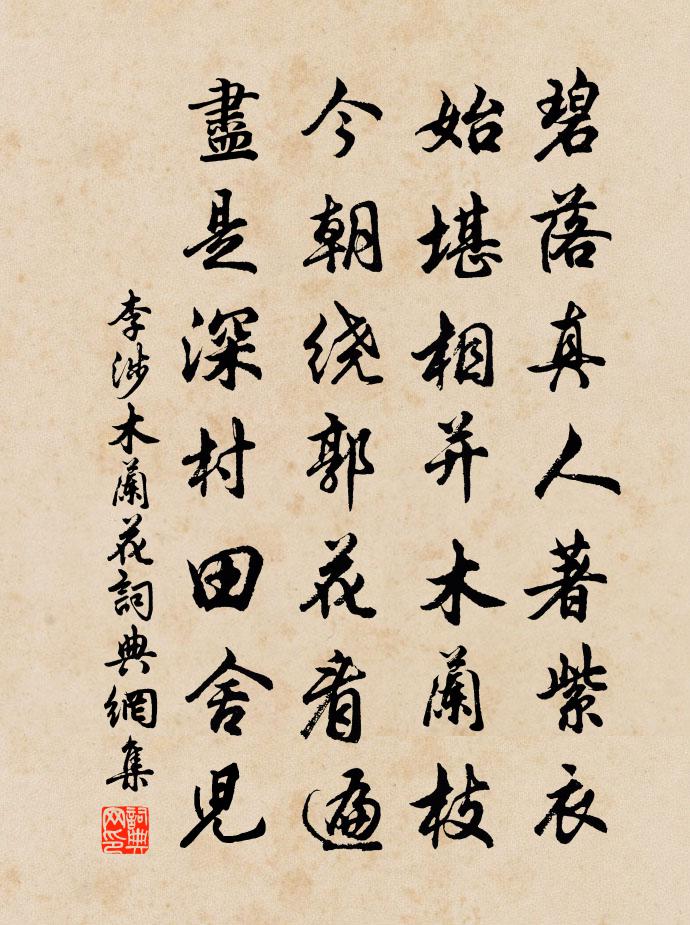 碧落真人著紫衣
始堪相并木蘭枝
今朝绕郭花看遍
盡是深村田舍児
李涉木蘭花詞典網集
詞典网印